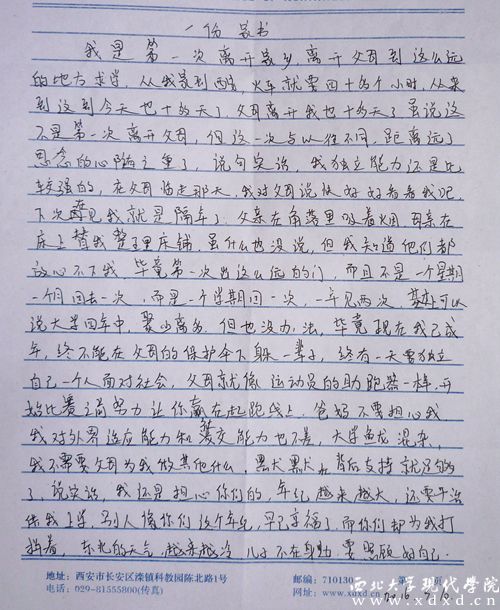 一份家书
我是第一次离开家乡,离开父母到这么远
的地方求学,从我家到西安,火车就要四十多个小时,从来
到这到今天也十多天了,父母离开我也十多天了虽说这
不是第一次离开父母,但这一次与以往不同,距离远了
思念的心随之重了,说句实话,我独立能力还是比
较强的,在父母临走那天,我对父母说快好好看看我吧,
下次再见我就是隔年了,父亲在角落里吸着烟母亲在
床上替我整理床铺,虽什么也没说,但我知道他们都
放心不下我,毕竟第一次出这么远的门,而且不是一个星期
一个月回去一次,而是一个学期回一次,一年见两次,可以
说大学四年中,聚少离多,但也没办法,毕竟现在我已成
年,终不能在父母的保护伞下躲一辈子,终有一天要独立
自己一个人面对社会,父母就像运动员的助跑器一样,开
始比赛之前努力让你赢在起跑线上,爸妈不要担心我
我对外界适应能力和交能力也不差,大学鱼龙混杂,
我不需要父母为我做其他什么,默默在背后支持就足够
了,说实话,我还是担心你们的,年纪越来越大,还要干活
供我上学,别人像你们这个年纪,早已享福了,而你们却为我打
拼着,东北的天气,越来越冷儿子不在身边,要照顾好自己.
地址:西安市长安区滦镇科教园陈北路1号
电话:029-81555800(传真)
邮编:710130
网址:www.xdxd.cn
第 页
2016.9.10
西北大学现代学院
www.xdxd.cn